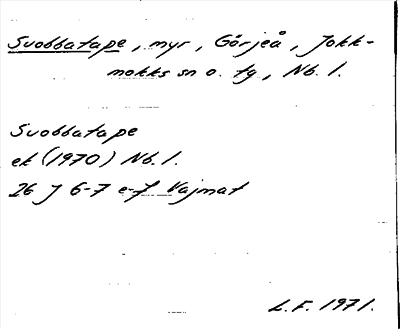 Suobbatape, myr, Görjeå, Jokk-
mokks sn o. tg., Nb. l.
Suobbatape
ek (1970) Nb. l.
26 J 6-7 e-f Vajmat
L.F. 1971.